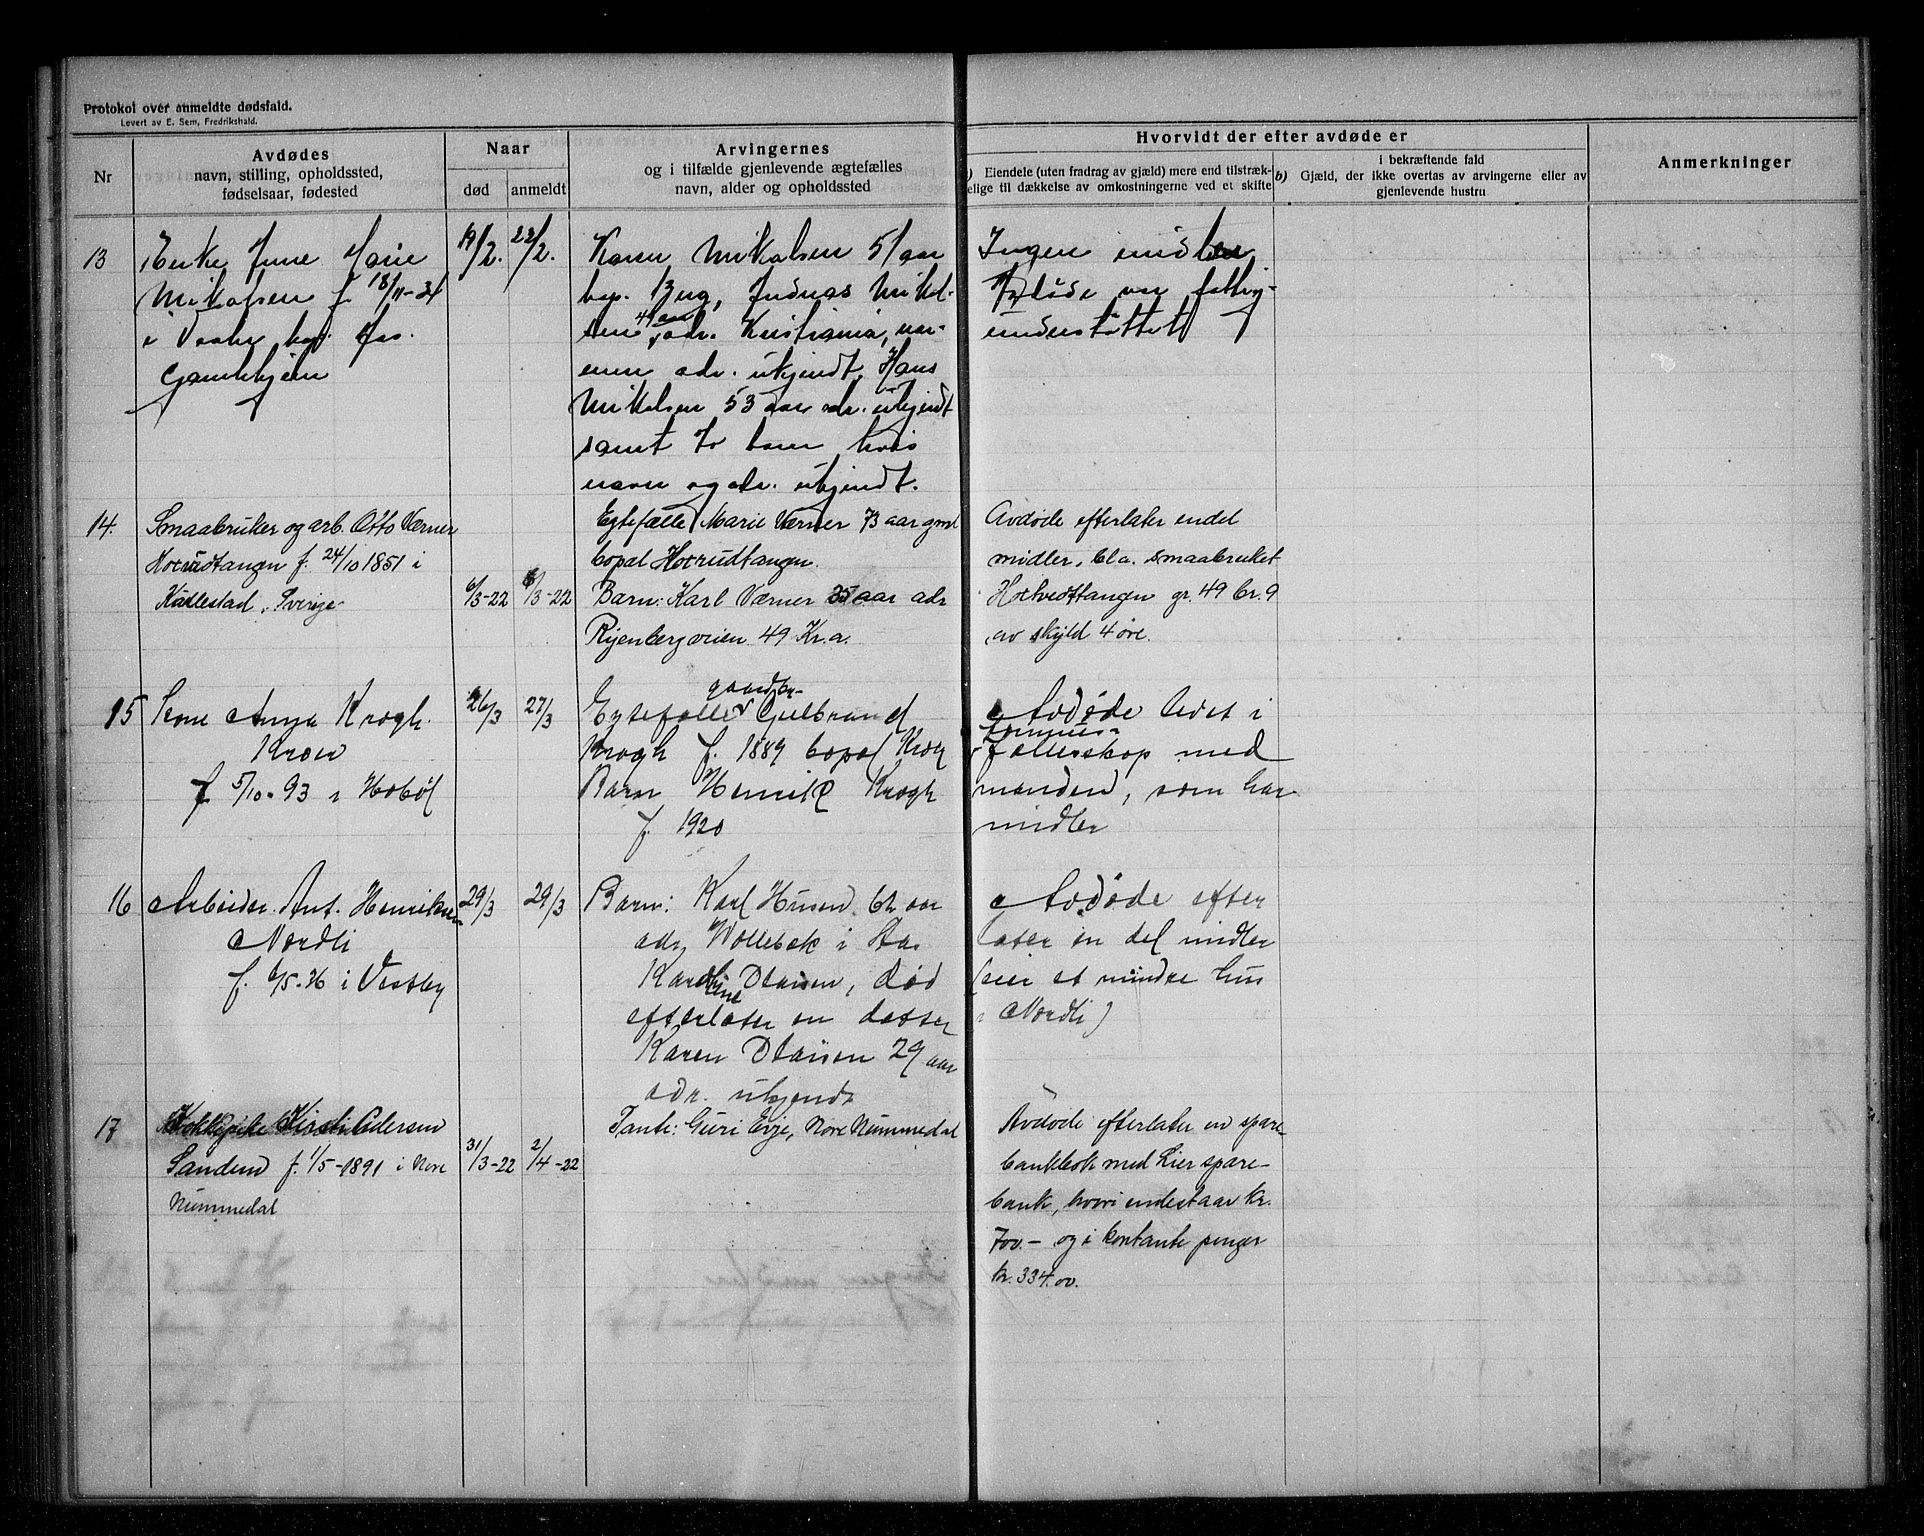 Protokol over anmeldte dødsfald.
Levert av E. Sem, Fredrikshald.
Nr
Avdødes
navn, stilling, opholdssted,
fødselsaar, fødested
Naar
død
anmeldt
Arvingernes
og i tilfælde gjenlevende ægtefælles
navn, alder og opholdssted
Hvorvidt der efter avdøde er
a) Eiendele (uten fradrag av gjæld) mere end tilstræk-
kelige til dækkelse av omkostningerne ved et skifte
i bekræftende fald
b) Gjæld, der ikke overtas av arvingerne eller av
gjenlevende hustru
Anmerkninger
13
Enke Marie
Mikalsen f. 18/11-34
i Vaaler
Gamlehjem
19/2. 22/2.
Karen Mikalsen 51 aar
bop. Berg, Mikal-
sen 49 aar adr. Kristiania, nær-
mere adr. ukjendt, Hans
Mikalsen 53 aar adr. ukjendt
samt to barn hvis
navn og adr. ukjendt.
Ingen midler
Avdøde var fattig-
understøttet
14.
Smaabruker og arb. Otto Værner
f. 24/10 1851 i
Sverige
6/3-22
6/3-22
Egtefælle Marie Værner 73 aar gml
bopæl
Barn: Karl Værner 35 aar adr
Ryenbergveien 49 Kr.a.
Avdøde efterlater endel
midler, bl.a. smaabruket
gr. 49 br. 9
av skyld 4 øre.
15
Kone Anna Krogh
Kroer
f. 5/10-93 i Hobøl
26/3
27/3
gaardbr-
Egtefælle Gulbrand
Krogh f. 1889 bopæl Kroer
Barn Henrik Krogh
f. 1920
Avdøde levet i
formues-
fællesskap med
manden, som har
midler
16
Arbeider Ant. Henriksen
Nordli
f. 6/5-36 i Vestby
29/3
29/3
Barn: Karl 62 aar
adr. Wollebek i Aas
Karoline Olausen, død
efterlater en datter
Karen Olausen 29 aar
adr. ukjendt
Avdøde efter
later en del midler
(eier et mindre hus
i Nordli)
17
Kokkepike Kirsti Edersen
Sanden f. 1/5-1891 i Nore
Nummedal
31/3-22
2/4-22
Tante: Guri Evje, Nore Nummedal
Avdøde efterlater en spare-
bankbok med Lier spare-
bank, hvori indestaar kr.
700.- og i kontante penger
kr. 334.00.